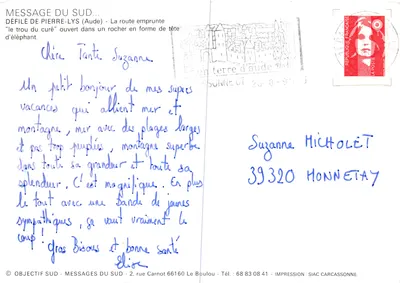 MESSAGE DU SUD...
DÉFILÉ DE PIERRE-LYS (Aude) - La route emprunte
"le trou du curé" ouvert dans un rocher en forme de tête
d'éléphant
Chère Tante Suzanne
Un petit bonjour de mes supers
vacances qui allient mer et
montagne, mer avec des plages larges
et pas trop peuplées, montagne superbe
dans toute sa grandeur et toute sa
splendeur. C'est magnifique. En plus
le tout avec une bande de jeunes
sympathiques, ça vaut vraiment le
coup !
Gros Bisous et bonne santé
Elise
Suzanne MICHOLET
39320 MONNETAY
© OBJECTIF SUD - MESSAGES DU SUD - 2, rue Carnot 66160 Le Boulou - Tél : 68 83 08 41 - IMPRESSION : SIAC CARCASSONNE